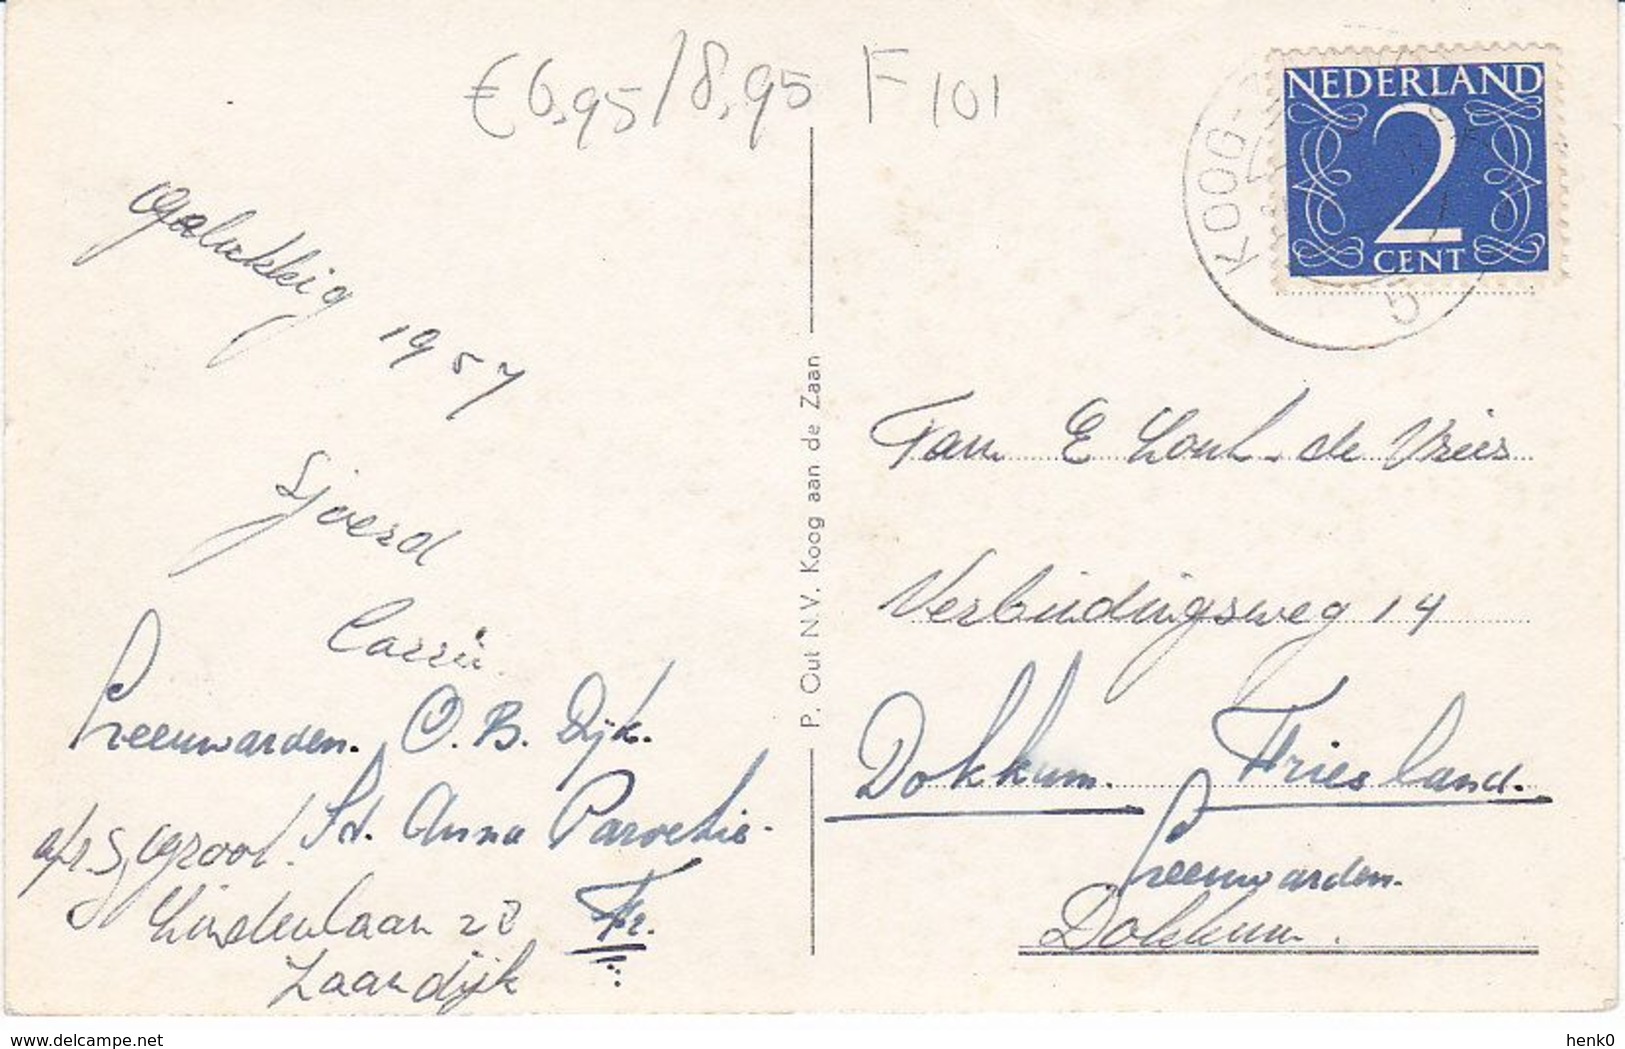 €6,95/8,95 F 101
NEDERLAND
2
CENT
KOOG-
5
Gelukkig
1957
Sjoerd
Carrie
Leeuwarden. O. B. Dijk.
St. Anna Parochie.
afz. S. Groot.
Lindenlaan 28 Fr.
Zaandijk
P. Out N.V. Koog aan de Zaan
Fam E de Vries
Verbindingsweg 14
Dokkum. Friesland.
Leeuwarden.
Dokkum.
delcampe.net
henk0